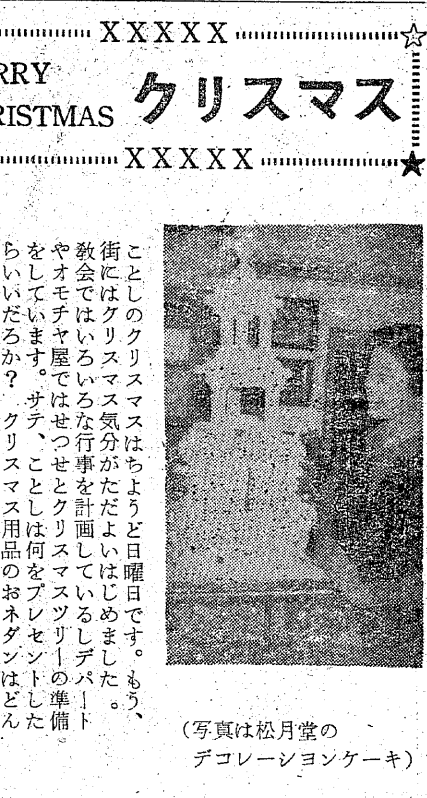 XXXXX
RRY
RISTMAS
クリスマス
XXXXX
ことしのクリスマスはちようど日曜日です。もう、
街にはクリスマス気分がただよいはじめました。
教会ではいろいろな行事を計画しているしデパート
やオモチヤ屋ではせつせとクリスマスツリーの準備
をしています。サテ、ことしは何をプレゼントした
らいいだろか? クリスマス用品のおネダンはどん
(写真は松月堂の
デコレーシヨンケーキ)